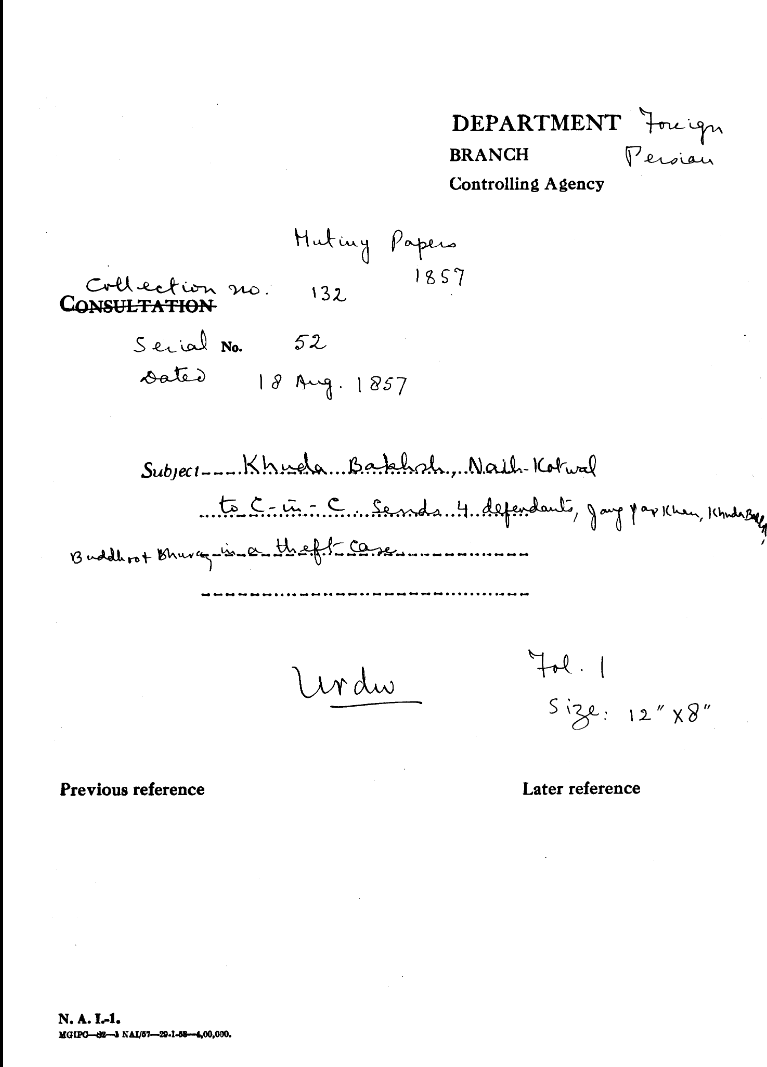 DEPARTMENT Foreign
BRANCH Persian
Controlling Agency
Mutiny Papers
1857
Collection no. 132
CONSULTATION
Serial No. 52
Dated 18 Aug. 1857
Subject Khuda Bakhsh, Naib-Kotwal
to C-in-C. Sends 4 defendants, Khan, Khuda
in a theft case
Urdu
Fol. 1
Size: 12" x 8"
Previous reference
Later reference
N. A. I.-1.
MGIPC—82—3 NAI/57—29-1-58—4,00,000.